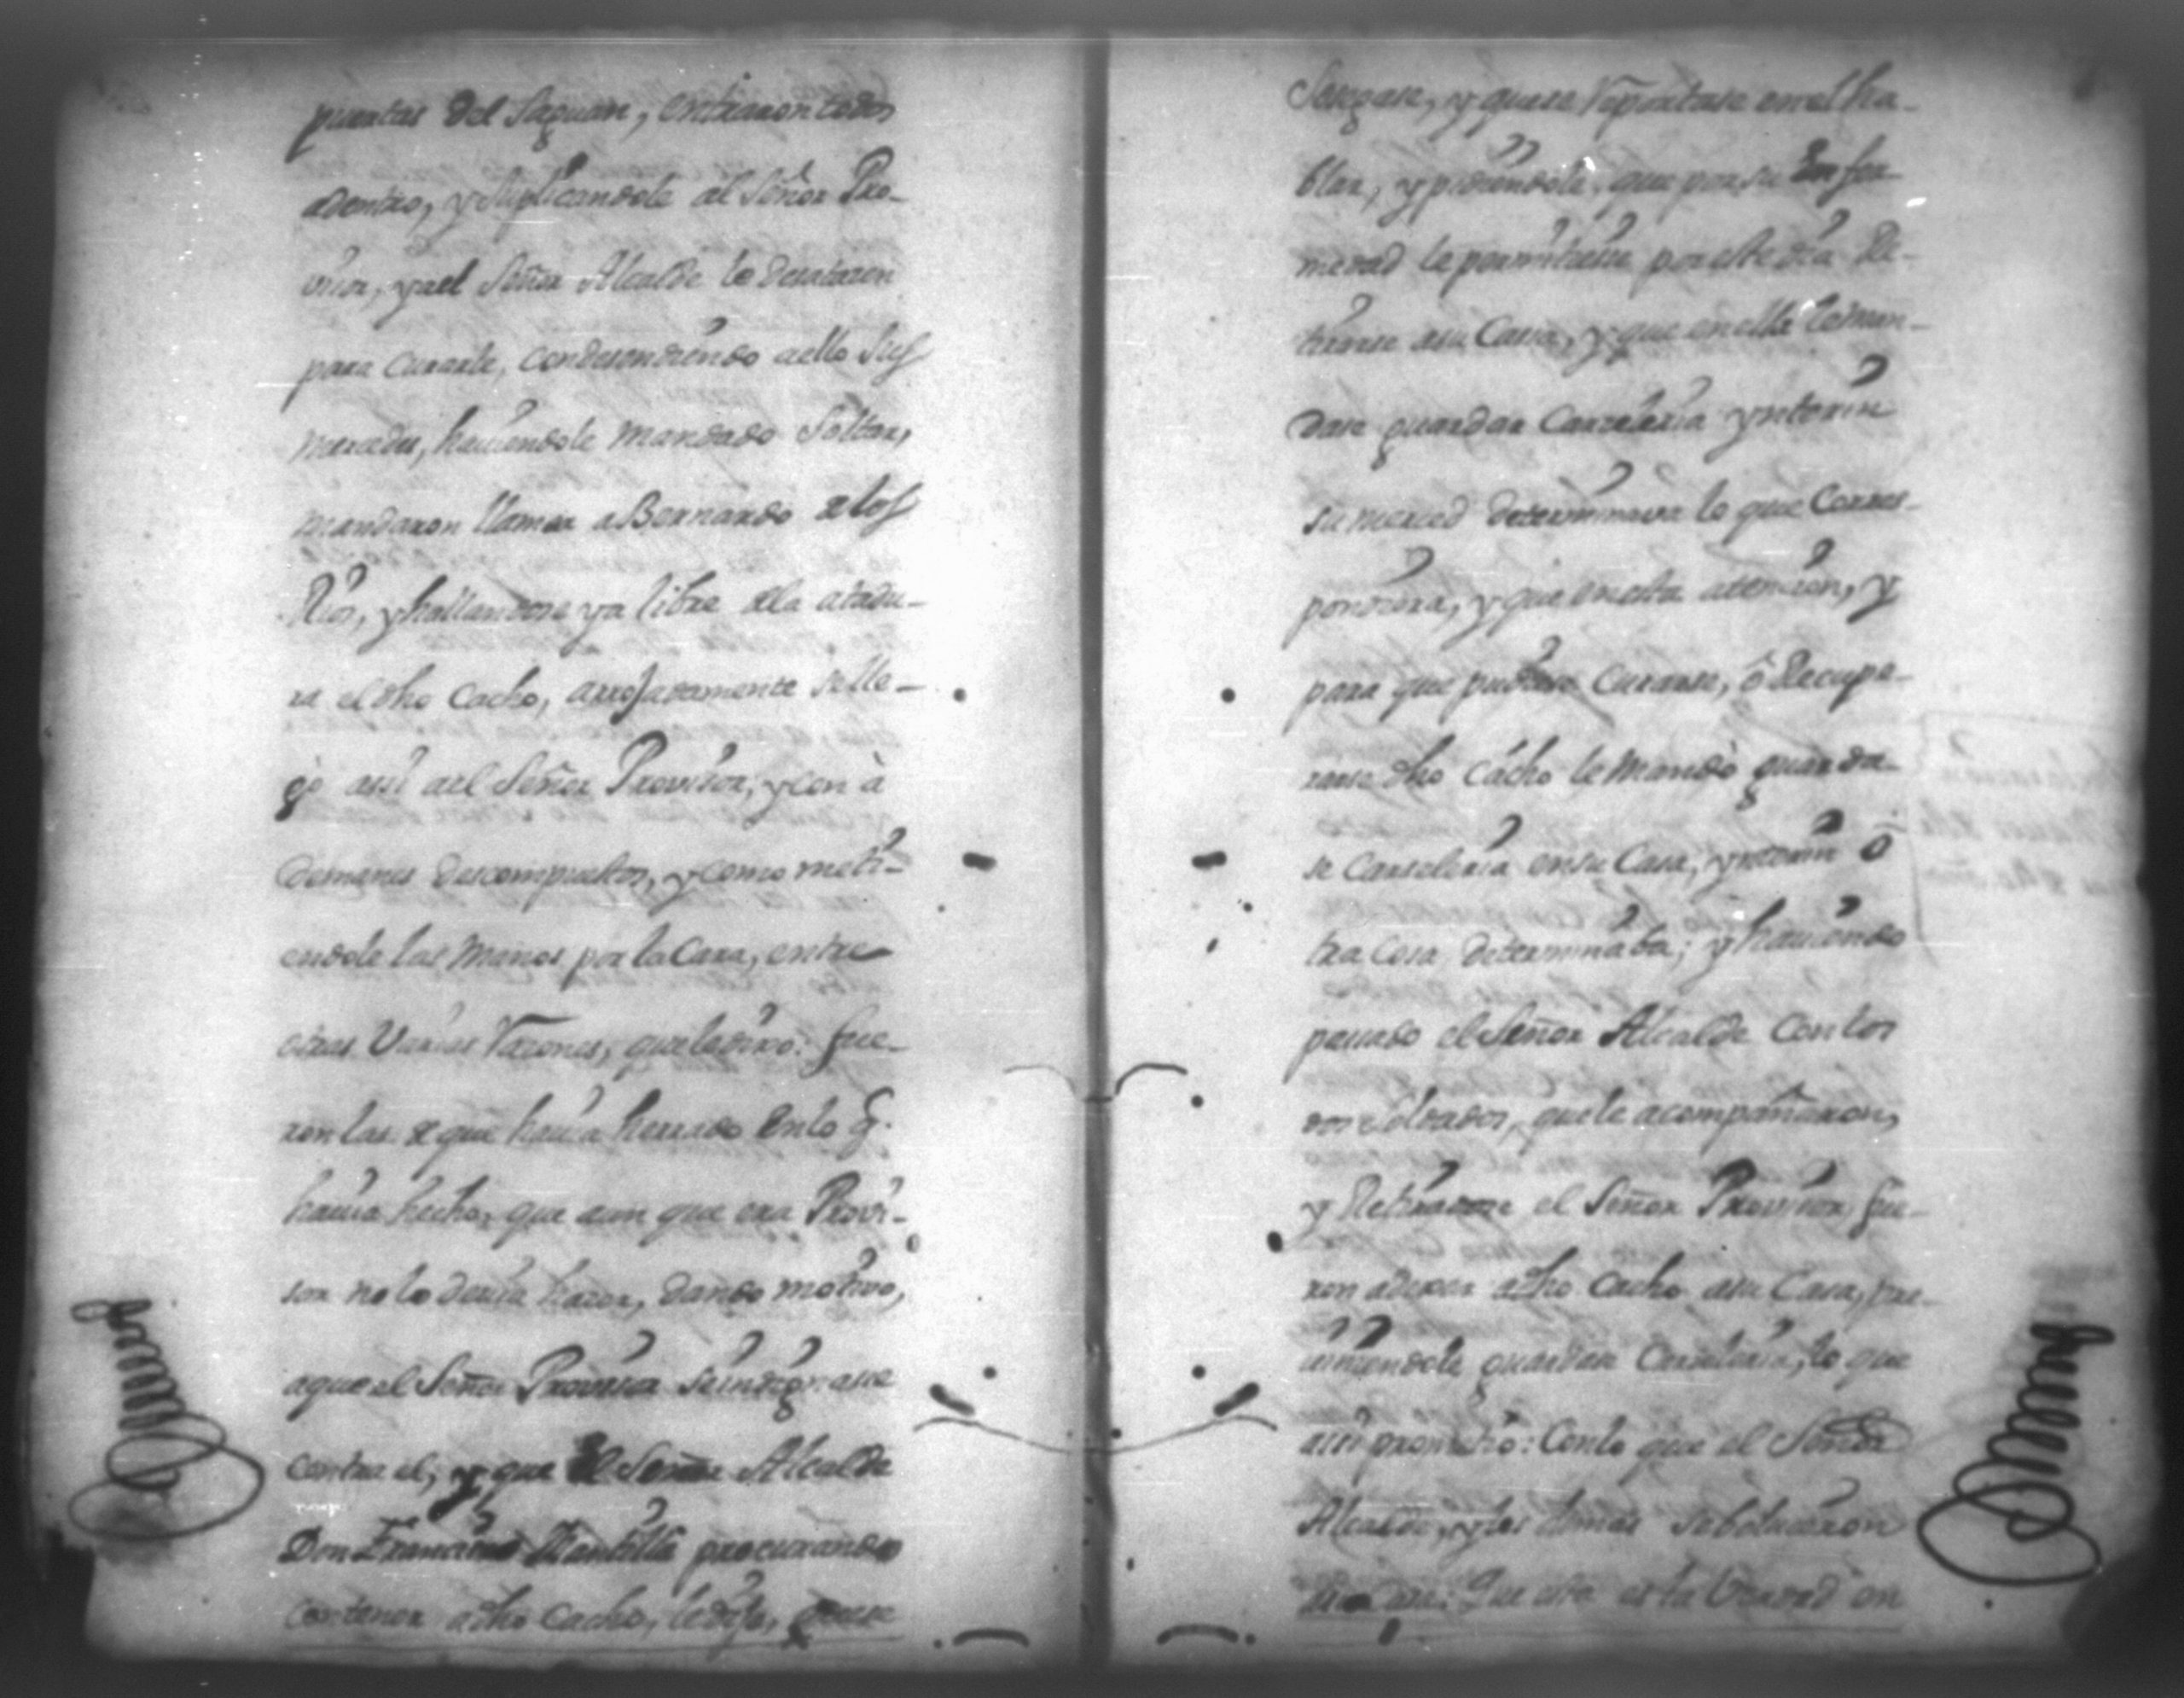 puertas del Saguan, entraron todos
adentro, y Suplicandole al Señor Pro-
visor, y al Señor Alcalde lo desataren
para Curarle, condesendiendo a ello Sus
mercedes, haciendole mandado Soltar,
mandaron llamar a Bernardo de los
Rios, y hallandose ya libre de la atadu-
ra el dho Cacho, arrojadamente se lle-
gò assi a el Señor Provisor, y con à
demanes descompuestos, y como meti-
endole las manos por la Cara, entre
otras Varias Razones, que le dixo: fue-
ron las de que havia herrado en lo q.
havia hecho, que aun que era Provi-
sor no lo devia hacer, dando motivo,
a que el Señor Provisor se indignase
contra el, y que el Señor Alcalde
Don Francisco Mantilla procurando
contener a dho Cacho, le dijo, que se
Sosegase, y que se Reportase en el ha-
blar, y pidiendole, que por su Enfer-
medad le permitiese por este dia Re-
tirarse a su Cassa, y que en ella le man-
dase guardar Carzeleria ynterin
su merced determinava lo que Corres-
pondiera, y que en esta attencion, y
para que pudiese Curarse, ô Recupe-
rarse dho Cacho le mandò guarda-
se Carseleria en su Casa, ynterin o
tra Cosa determinaba; y haviendo
passado el Señor Alcalde con los
dos soldados, que le acompañaron,
y Retiradose el Señor Provisor, fue-
ron a dexar a dho Cacho a su Casa, pre-
viniendole guardar Carseleria, lo que
assi prometio: Con lo que el Señor
Alcalde, y los demas se bolvieron
Que esta es la Verdad en